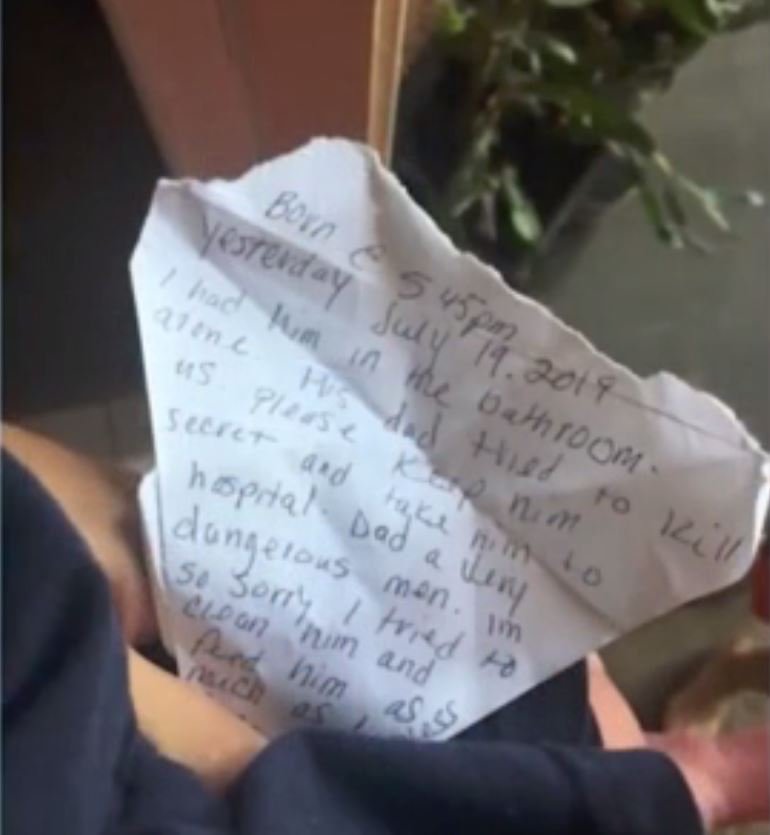 Born @ 5 45pm
yesterday July 19. 2019
I had him in the bathroom.
alone. His dad tried to kill
us. please keep him
secret and take him to
hospital. Dad a very
dangerous man. Im
so sorry I tried to
clean him and
feed him as
much as I